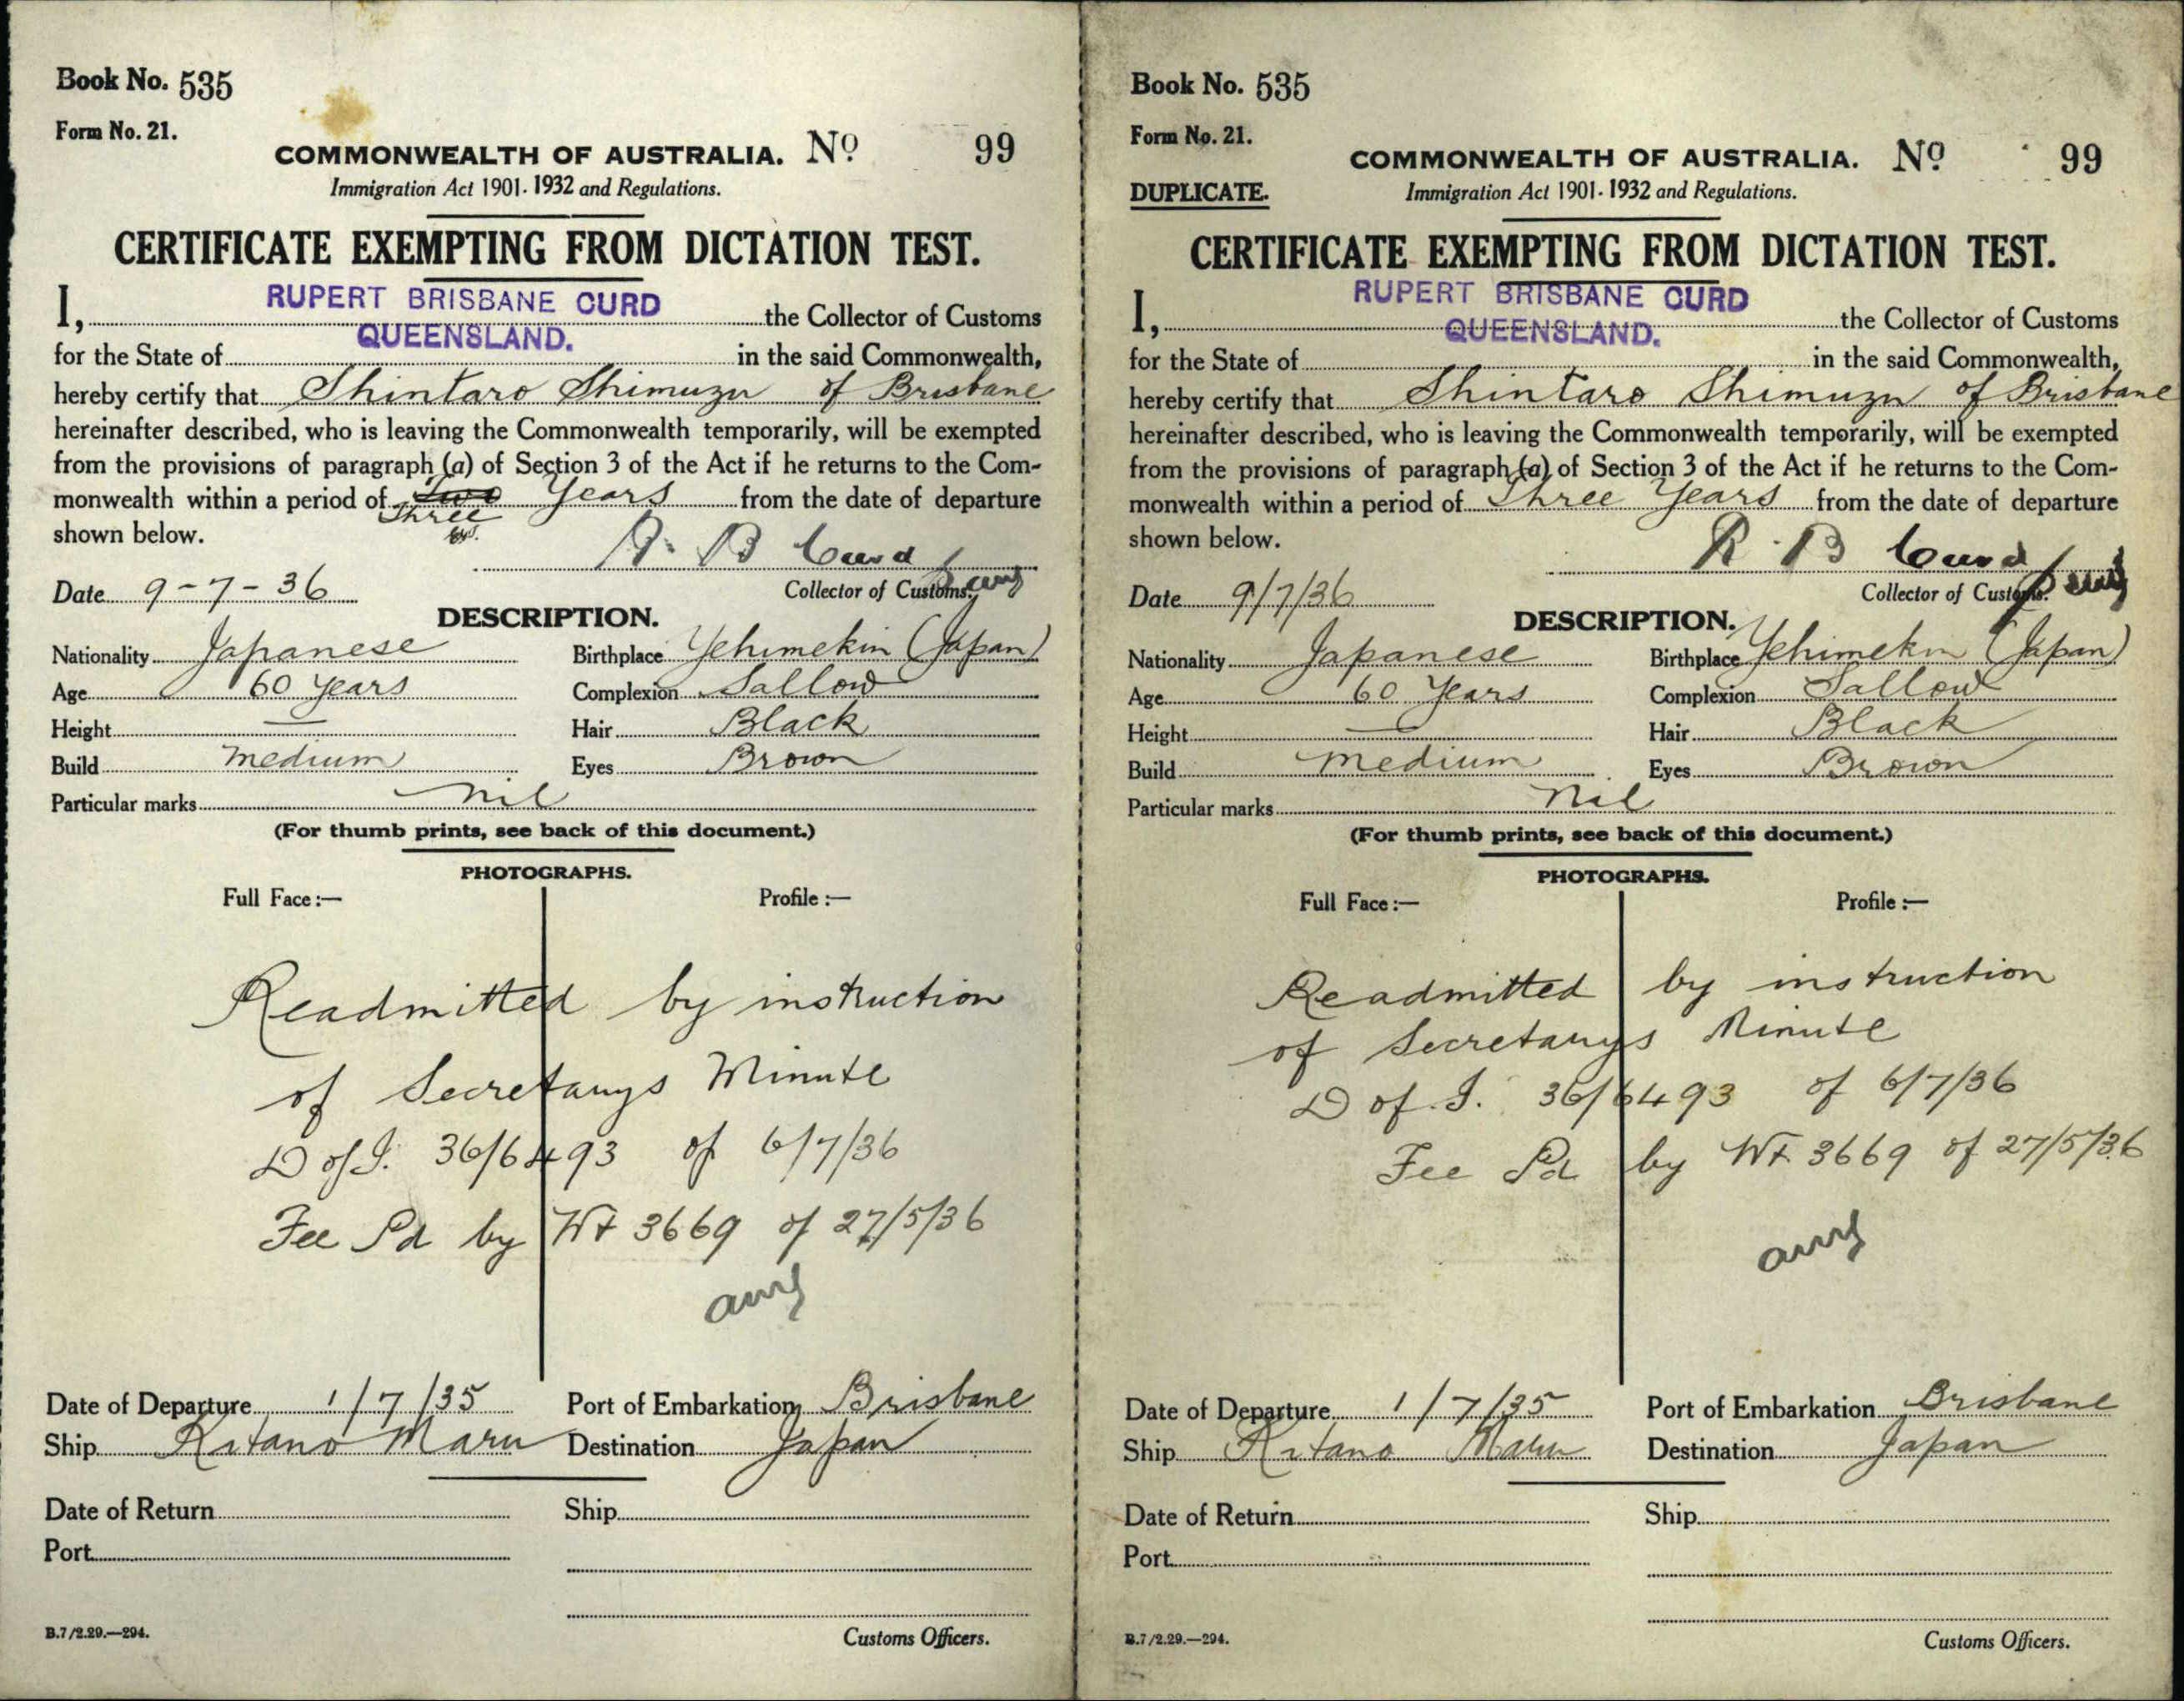 Book No. 535
Form No. 21.
COMMONWEALTH OF AUSTRALIA. No 99
Immigration Act 1901-1932 and Regulations.
CERTIFICATE EXEMPTING FROM DICTATION TEST.
I, RUPERT BRISBANE CURD the Collector of Customs
for the State of QUEENSLAND. in the said Commonwealth,
hereby certify that Shintaro Shimuzu of Brisbane
hereinafter described, who is leaving the Commonwealth temporarily, will be exempted
from the provisions of paragraph (a) of Section 3 of the Act if he returns to the Com-
monwealth within a period of Two Years from the date of departure
Three
shown below.
R. B Curd
Date 9-7-36 Collector of Customs.
DESCRIPTION.
Nationality Japanese Birthplace Yehimekin (Japan)
Age 60 Years Complexion Sallow
Height — Hair Black
Build medium Eyes Brown
Particular marks nil
(For thumb prints, see back of this document.)
PHOTOGRAPHS.
Full Face :— Profile :—
Readmitted by instruction
of Secretarys Minute
D of I. 36/6493 of 6/7/36
Fee Pd by Wt 3669 of 27/5/36
Date of Departure 1/7/35 Port of Embarkation Brisbane
Ship Kitano Maru Destination Japan
Date of Return Ship
Port
B.7/2.29.—294. Customs Officers.
Book No. 535
Form No. 21.
COMMONWEALTH OF AUSTRALIA. No 99
DUPLICATE. Immigration Act 1901-1932 and Regulations.
CERTIFICATE EXEMPTING FROM DICTATION TEST.
I, RUPERT BRISBANE CURD the Collector of Customs
for the State of QUEENSLAND. in the said Commonwealth,
hereby certify that Shintaro Shimuzu of Brisbane
hereinafter described, who is leaving the Commonwealth temporarily, will be exempted
from the provisions of paragraph (a) of Section 3 of the Act if he returns to the Com-
monwealth within a period of Three Years from the date of departure
shown below.
R. B Curd
Date 9/7/36 Collector of Customs.
DESCRIPTION.
Nationality Japanese Birthplace Yehimekin (Japan)
Age 60 Years Complexion Sallow
Height — Hair Black
Build medium Eyes Brown
Particular marks nil
(For thumb prints, see back of this document.)
PHOTOGRAPHS.
Full Face :— Profile :—
Readmitted by instruction
of Secretarys Minute
D of I. 36/6493 of 6/7/36
Fee Pd by Wt 3669 of 27/5/36
Date of Departure 1/7/35 Port of Embarkation Brisbane
Ship Kitano Maru Destination Japan
Date of Return Ship
Port
B.7/2.29.—294. Customs Officers.